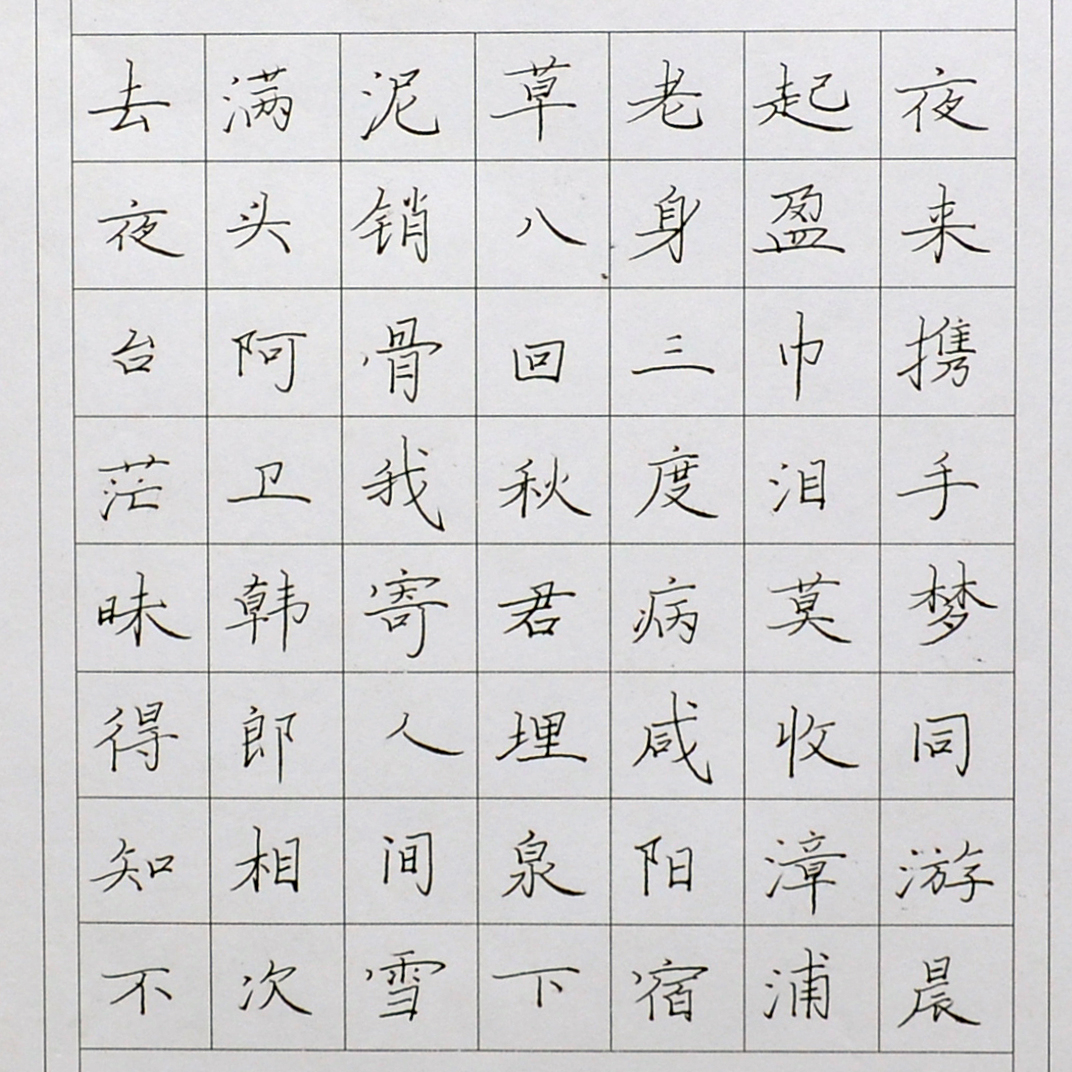 夜来携手梦同游晨
起盈巾泪莫收漳浦
老身三度病咸阳宿
草八回秋君埋泉下
泥销骨我寄人间雪
满头阿卫韩郎相次
去夜台茫昧得知不